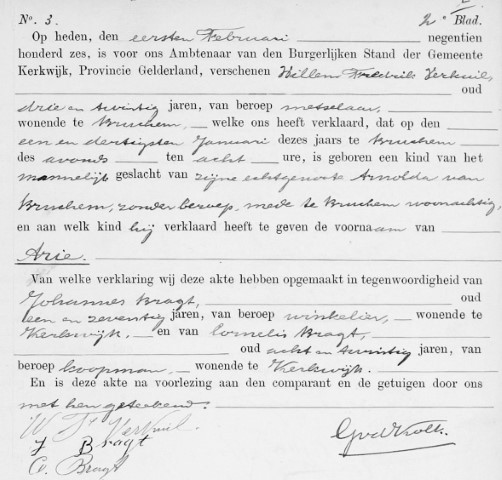 No. 3. 2e Blad.
Op heden, den eersten Februari negentien
honderd zes, is voor ons Ambtenaar van den Burgerlijken Stand der Gemeente
Kerkwijk, Provincie Gelderland, verschenen Willem Frederik Verkuil,
oud
drie en twintig jaren, van beroep metselaar,
wonende te Bruchem, welke ons heeft verklaard, dat op den
een en dertigsten Januari dezes jaars te Bruchem
des avonds ten acht ure, is geboren een kind van het
mannelijk geslacht van zijne echtgenoote Arnolda van
Bruchem, zonder beroep, mede te Bruchem woonachtig,
en aan welk kind hij verklaard heeft te geven de voornaam van
Arie.
Van welke verklaring wij deze akte hebben opgemaakt in tegenwoordigheid van
Johannes Bragt, oud
een en zeventig jaren, van beroep winkelier, wonende te
Kerkwijk, en van Cornelis Bragt,
oud acht en twintig jaren, van
beroep koopman, wonende te Kerkwijk.
En is deze akte na voorlezing aan den comparant en de getuigen door ons
met hen geteekend.
W F Verkuil
J Bragt
C. Bragt